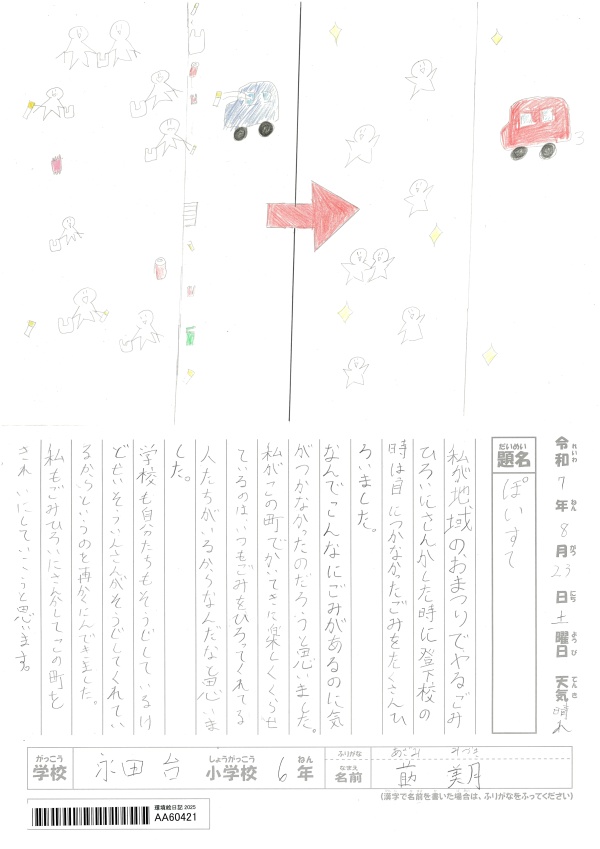 令和7年8月23日土曜日 天気晴れ
れいわ ねん がつ にち ようび てんき
だいめい
題名 ぽいすて
私が地域のおまつりでやるごみ
ひろいにさんかした時に登下校の
時は目につかなかったごみをたくさんひ
ろいました。
なんでこんなにごみがあるのに気
がつかなかったのだろうと思いました。
私がこの町でかいてきに楽しくくらせ
ているのは、いつもごみをひろってくれてる
人たちがいるからなんだなと思いま
した。
学校も自分たちもそうじしているけ
どせいそういんさんがそうじしてくれてい
るからというのを再かくにんできました。
私もごみひろいにさん加してこの町を
きれいにしていこうと思います。
がっこう しょうがっこう ねん
学校 永田台 小学校 6年
ふりがな あざみ みづき
なまえ
名前 美月
(漢字で名前を書いた場合は、ふりがなをふってください)
環境絵日記 2025
AA60421